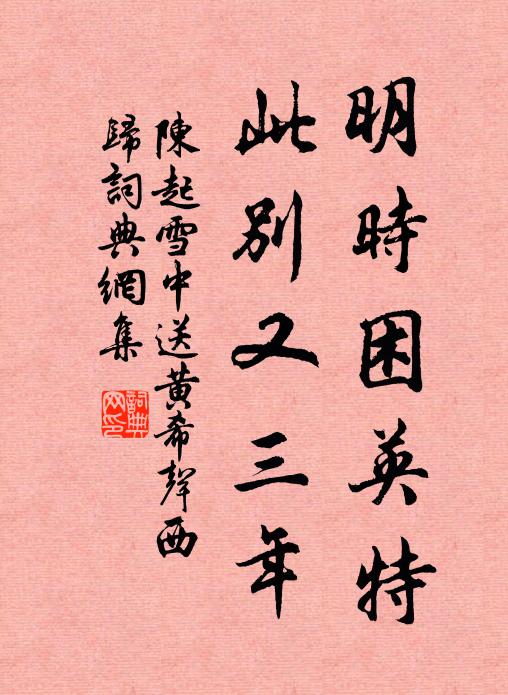 明時困英特
此別又三年
陳起雪中送黃希聲西
歸詞典網集
詞典网印